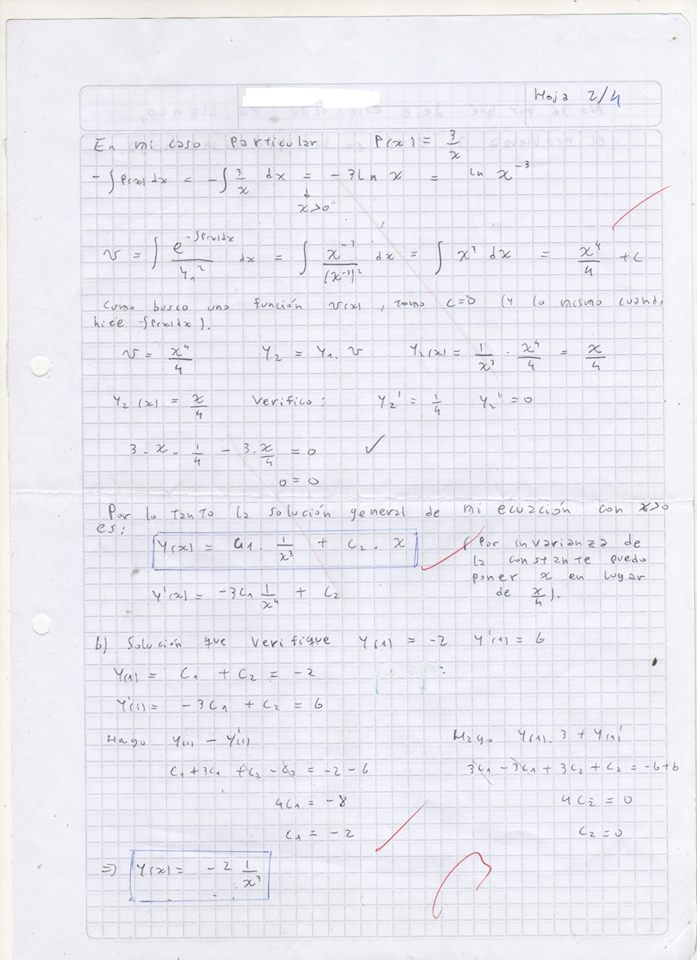 Hoja 2/4
En mi caso particular P(x) = 3/x
-∫P(x) dx = -∫ 3/x dx = -3 ln x = ln x^-3
↓
x>0
v = ∫ e^(-∫P(x)dx) / y₁² dx = ∫ x^-3 / (x^-3)² dx = ∫ x³ dx = x⁴/4 + c
Como busco una función v(x), tomo c=0 (y lo mismo cuando
hice -∫P(x)dx).
v = x⁴/4 y₂ = y₁ . v y₂(x) = 1/x³ . x⁴/4 = x/4
y₂(x) = x/4 Verifico: y₂' = 1/4 y₂'' = 0
3 . x . 1/4 - 3 . x/4 = 0 ✓
0 = 0
Por lo tanto la solución general de mi ecuación con x>0
es:
y(x) = C₁ . 1/x³ + C₂ . x
(Por invarianza de
la constante puedo
poner x en lugar
de x/4).
y'(x) = -3C₁ 1/x⁴ + C₂
b) Solución que verifique y(1) = -2 y'(1) = 6
y(1) = C₁ + C₂ = -2
y'(1) = -3C₁ + C₂ = 6
Hago y(1) - y'(1)
C₁ + 3C₁ + C₂ - C₂ = -2 - 6
4C₁ = -8
C₁ = -2
Hago y(1) . 3 + y(1)'
3C₁ - 3C₁ + 3C₂ + C₂ = -6+6
4C₂ = 0
C₂ = 0
=> y(x) = -2 1/x³